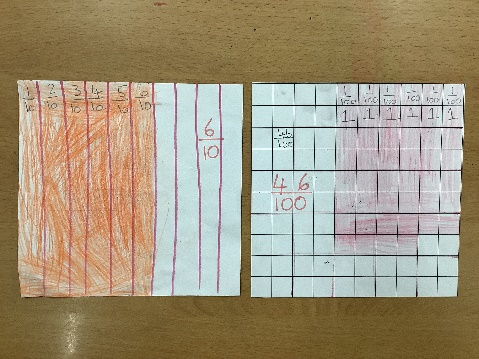 1/10 2/10 3/10 4/10 5/10 6/10
6/10
1/100 1/100 1/100 1/100 1/100 1/100
1 1 1 1 1 1
46/100